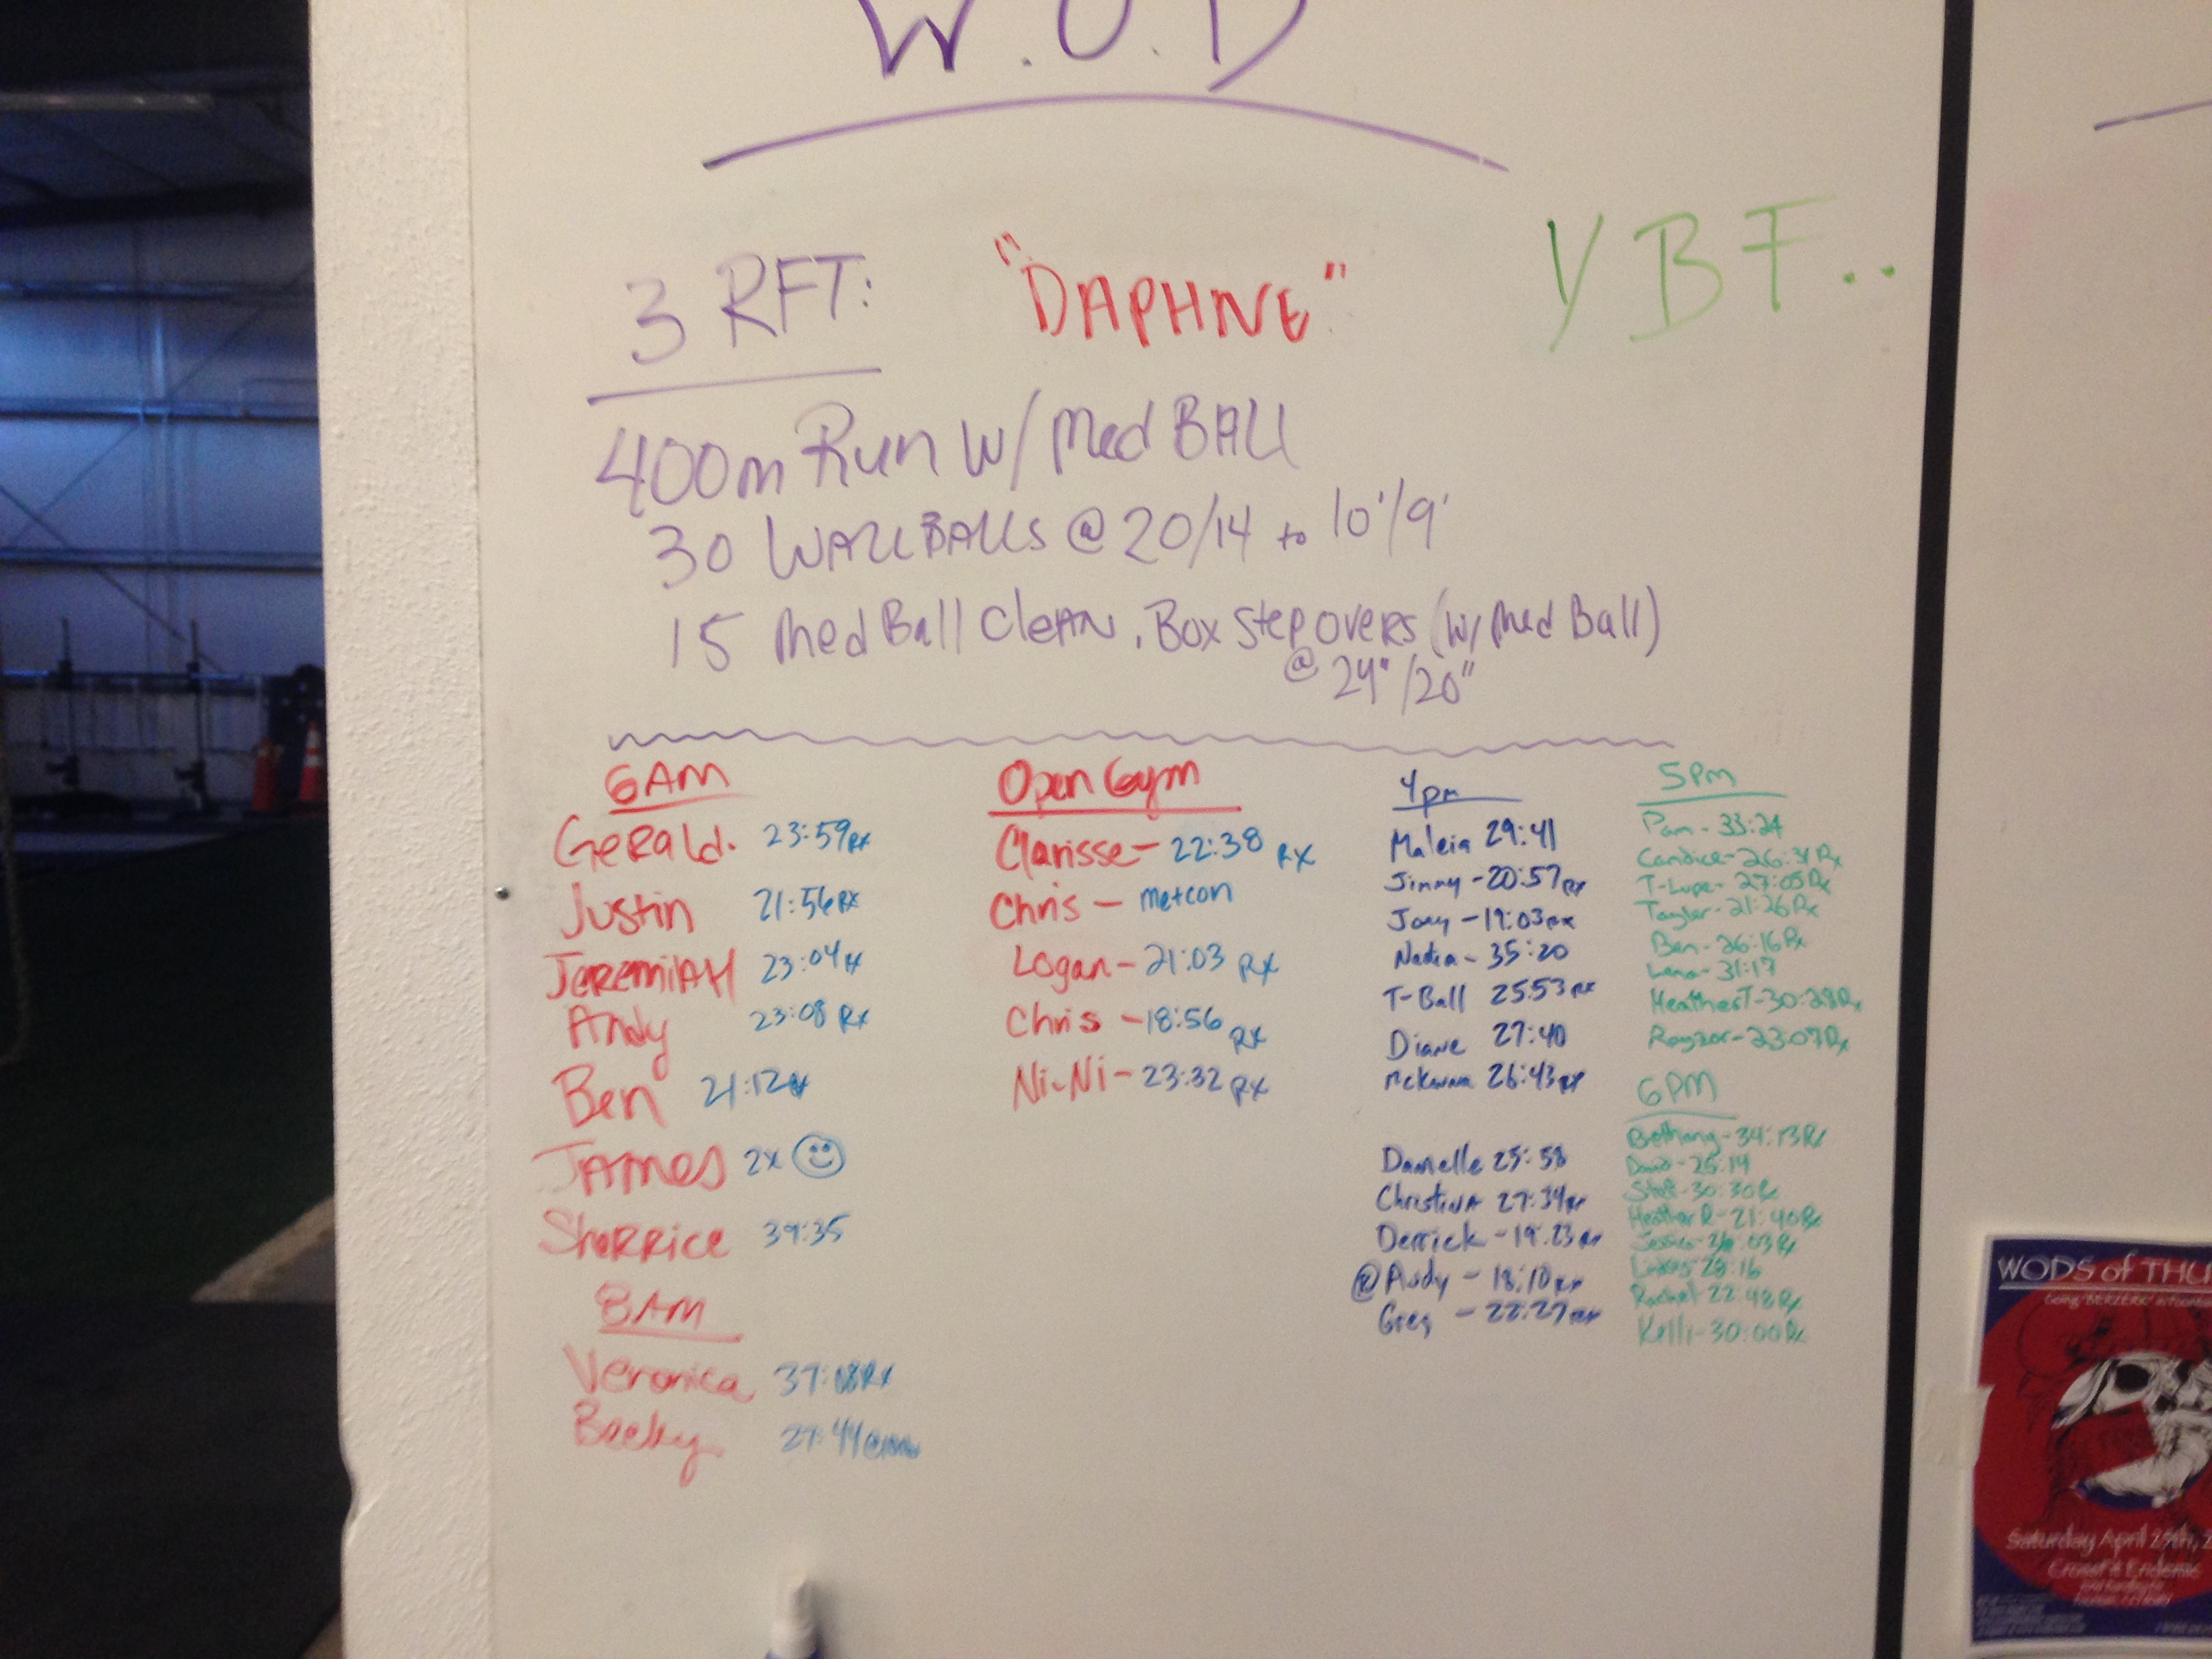 W.O.D
3 RFT: "DAPHNE" YBF..
400m Run W/ Med BALL
30 WALLBALLS @ 20/14 to 10'/9'
15 Med Ball CleAN, Box Step overs (w/ Med Ball)
@ 24"/20"
6AM
GeRald. 23:59 Rx
Justin 21:56 Rx
JeRemiAH 23:04
Andy 23:08 Rx
Ben 21:12
JAmes 2x
SheRRice 39:35
8AM
Veronica 37:08 Rx
Becky 27:44
Open Gym
Clarisse - 22:38 RX
Chris - metcon
Logan - 21:03 RX
Chris - 18:56 RX
Ni-Ni - 23:32 RX
4pm
Maleia 29:41
Jimmy - 20:57 Rx
Joey - 19:03 Rx
Nadia - 35:20
T-Ball 25:53 Rx
Diane 27:40
26:43 Rx
Danielle 25:58
ChristinA 27:34 Rx
Derrick - 19:23 Rx
@ Andy - 18:10 Rx
Greg - 22:27 Rx
5PM
Pam - 33:24
Candice - 26:31 Rx
T-Lupe - 27:05 Rx
Taylor - 21:26 Rx
Ben - 26:16 Rx
Lena - 31:17
Heather T - 30:28 Rx
Rayzor - 23:07 Rx
6PM
Bethany - 34:13 Rx
David - 25:14
Stef - 30:30 Rx
Heather R - 21:40 Rx
Rx
28:16
Rachel - 22:48 Rx
Kelli - 30:00 Rx
WODS of THU
Saturday April 25th, 2
CrossFit Endemic